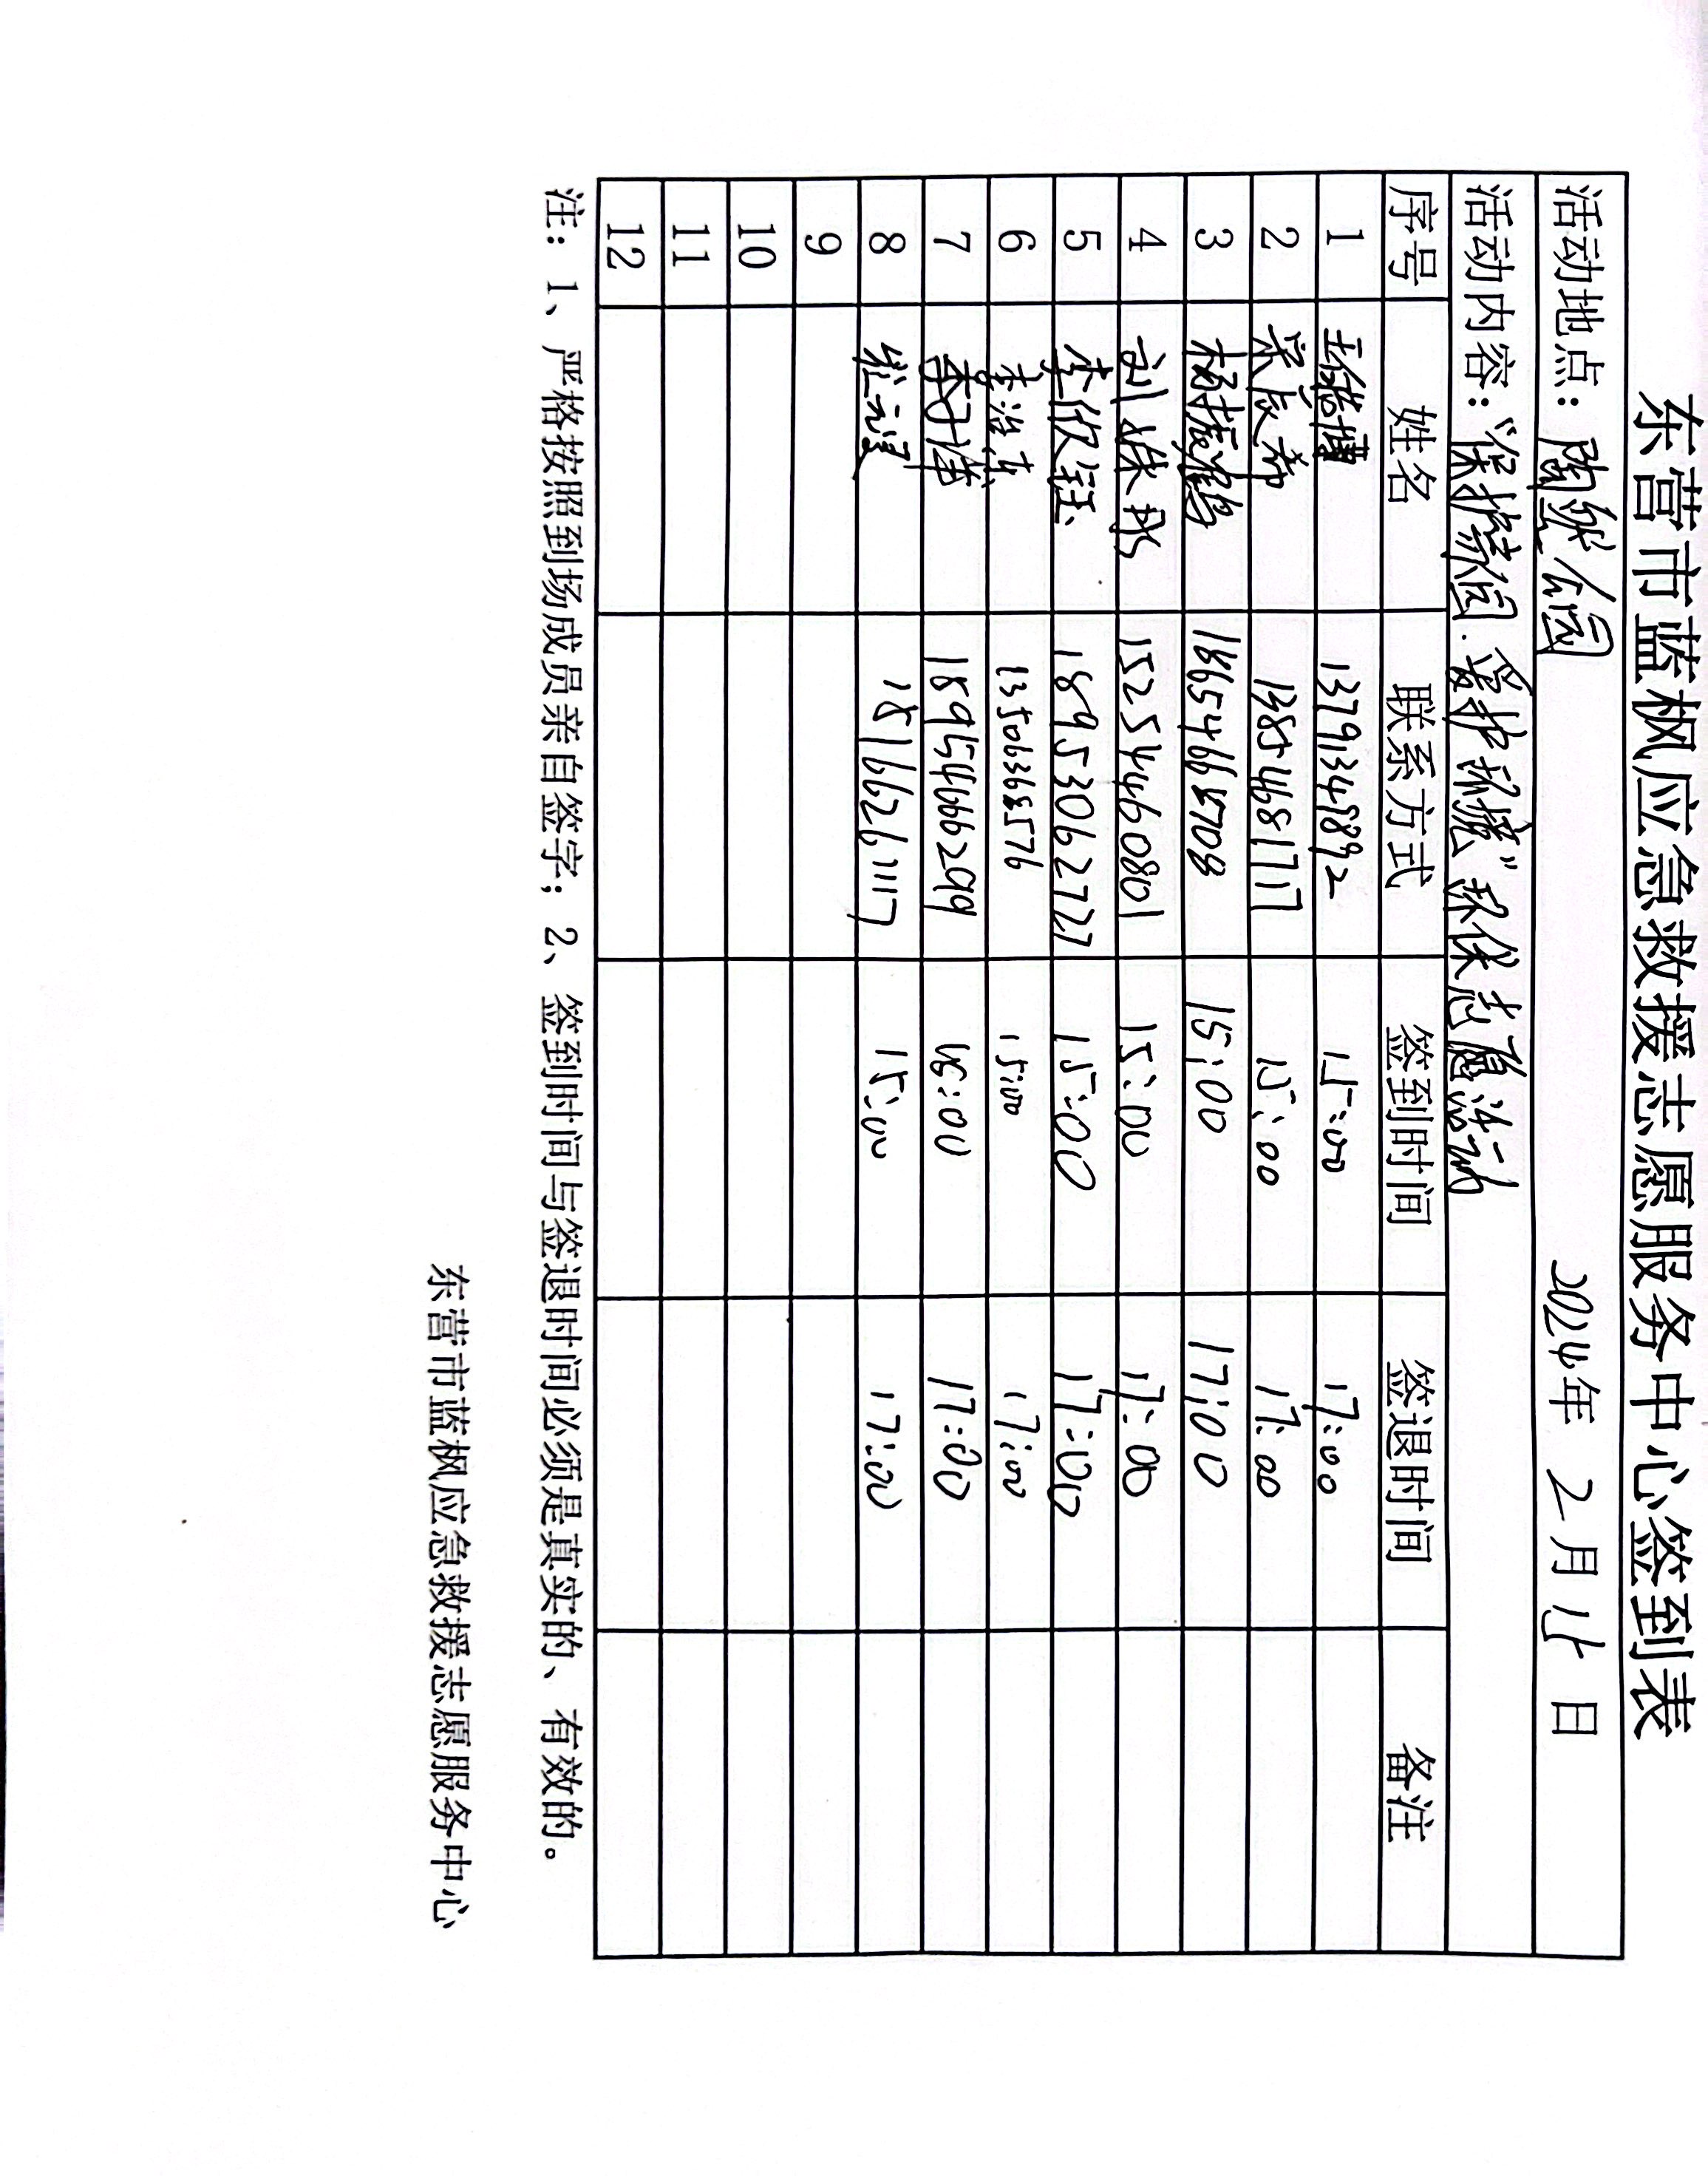 东营市蓝枫应急救援志愿服务中心签到表
活动地点：陶然公园 2024年 2 月 15 日
活动内容：“保护家园.爱护环境”环保志愿活动
序号 姓名 联系方式 签到时间 签退时间 备注
1 13791349892 15:00 17:00
2 13854681717 15:00 17:00
3 杨振鹏 15:00 17:00
4 刘姝彤 15254460801 15:00 17:00
5 李欣钰 18953062727 15:00 17:00
6 李浩 15:00 17:00
7 李子 18954666299 17:00
8 18166261117 15:00 17:00
9
10
11
12
注：1、严格按照到场成员亲自签字；2、签到时间与签退时间必须是真实的、有效的。
东营市蓝枫应急救援志愿服务中心